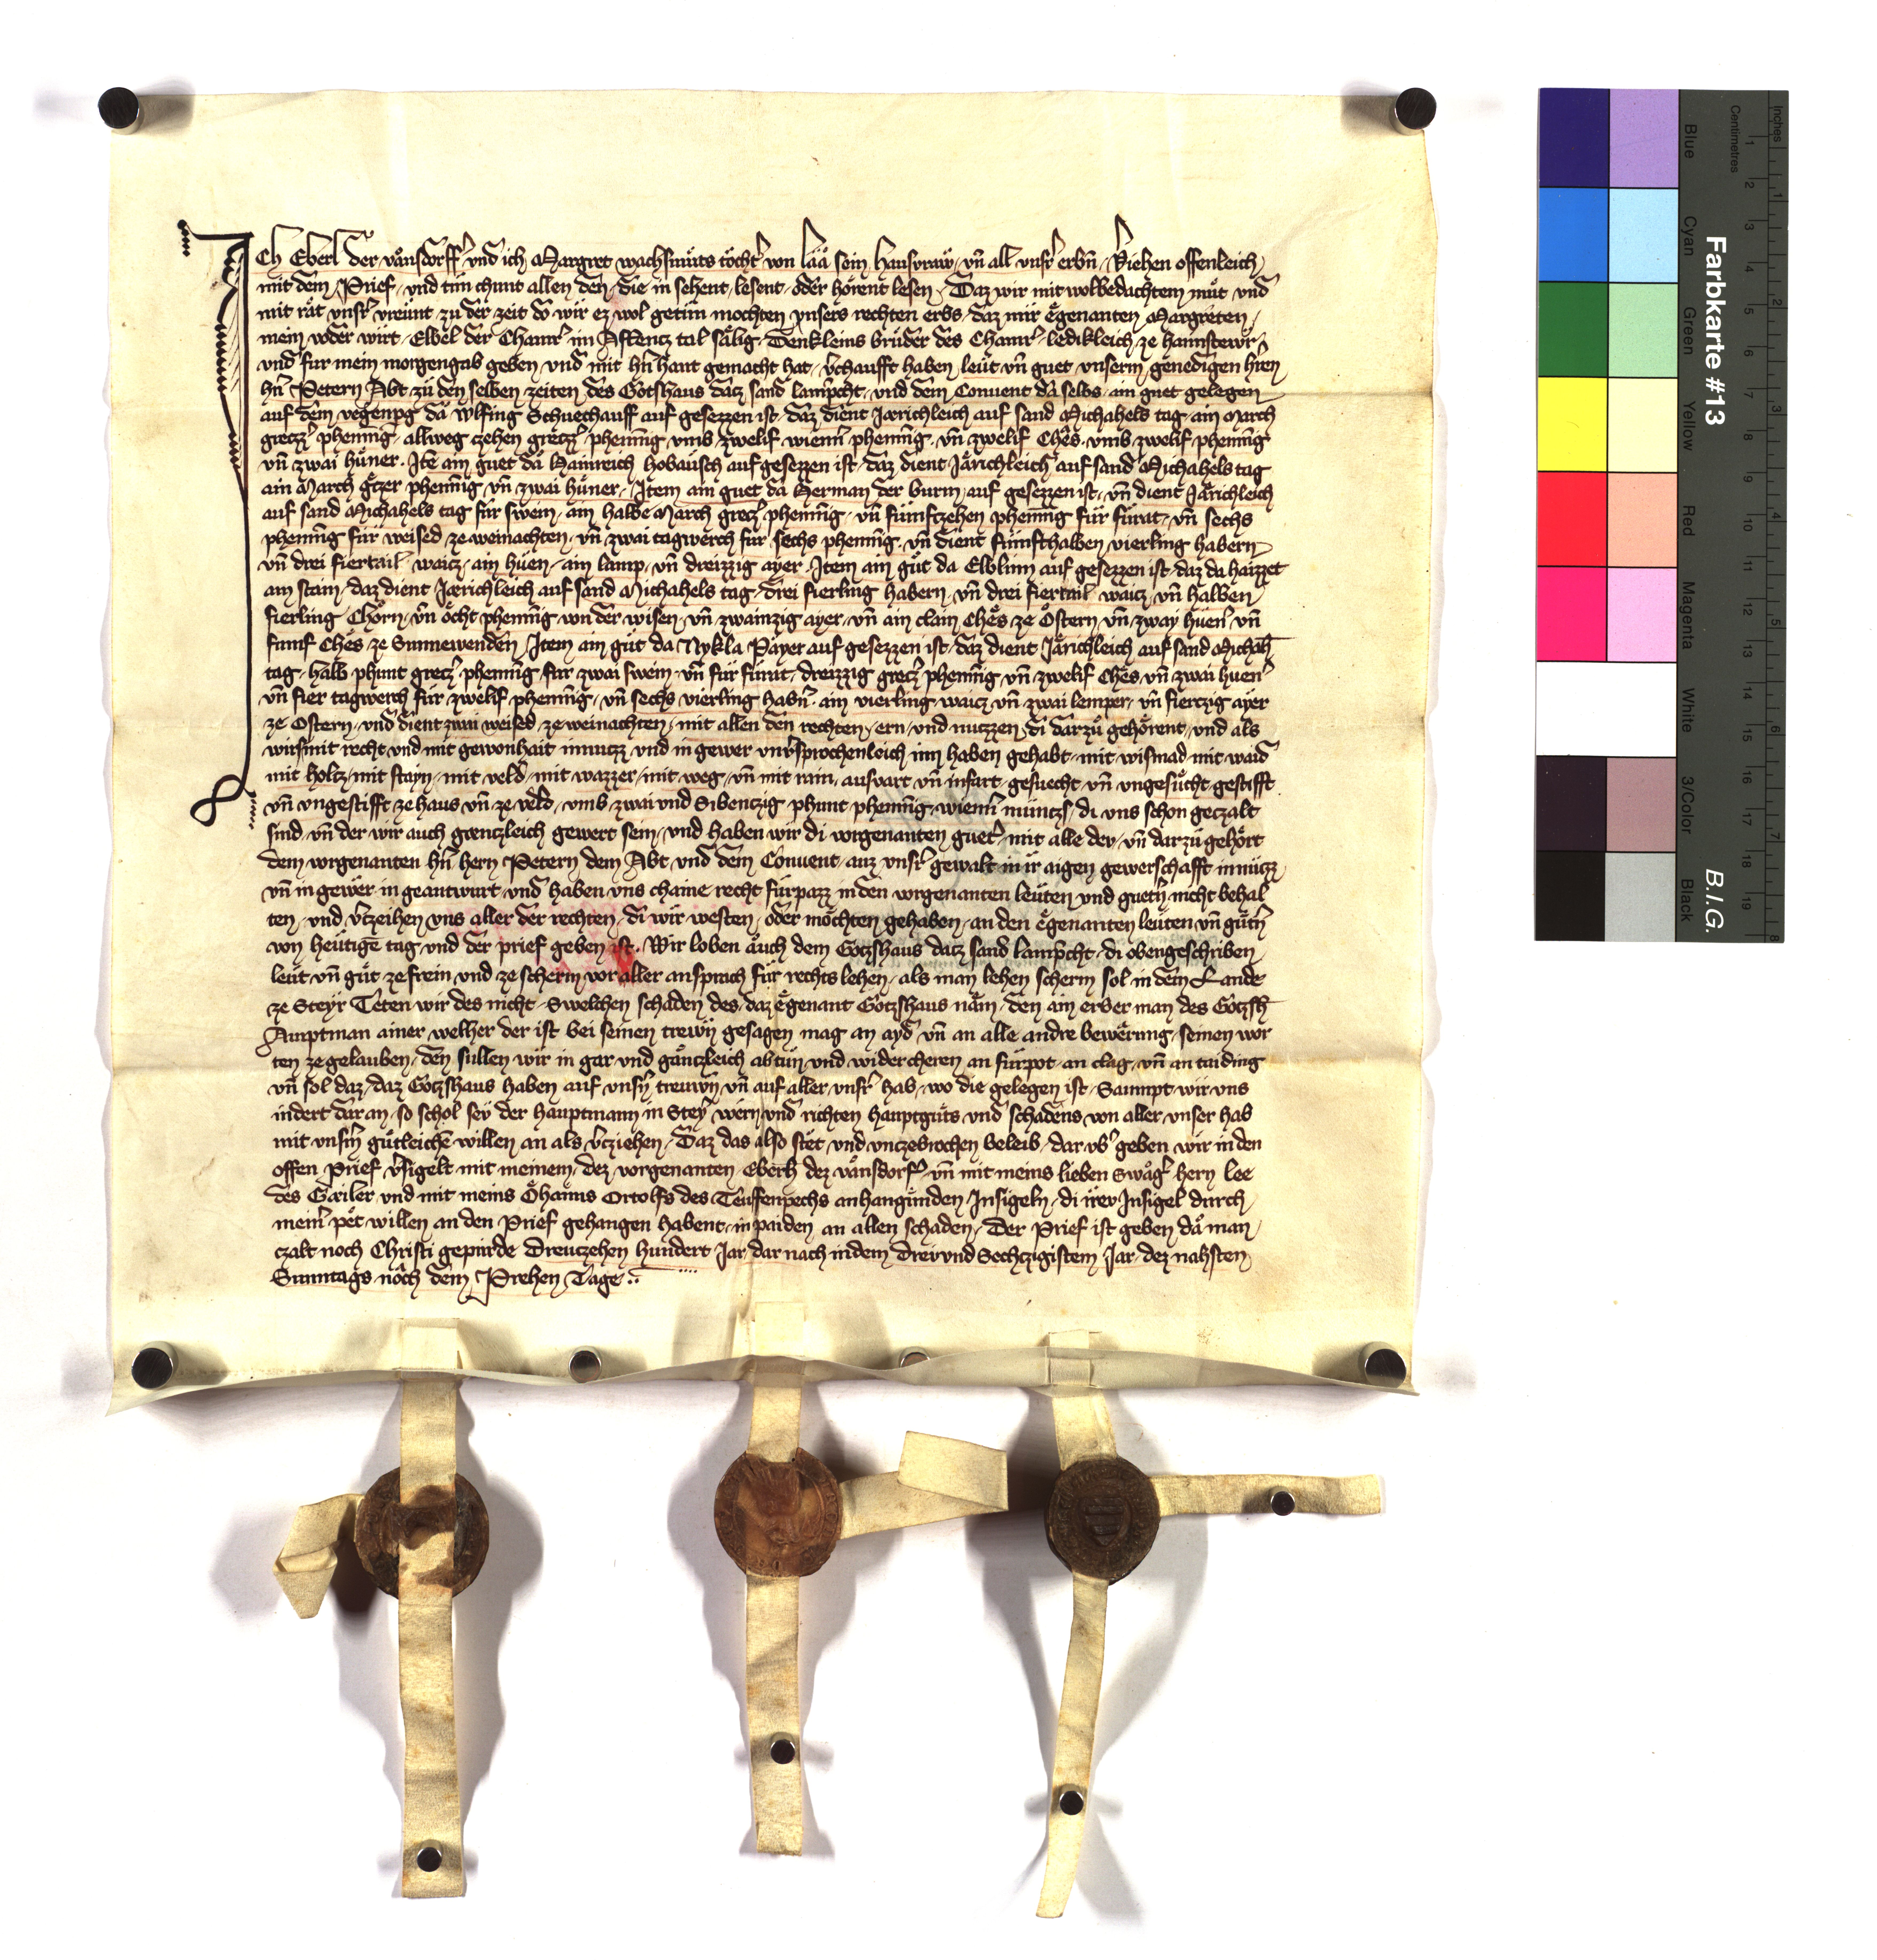 Ich Eberl der vänsdorffer und ich Margret wachsmůts tochter von Lââ sein hausvraw, vnd all vnser erbn, veriehen offenleich
mit dem Prief, und tun chunt allen den, die in sehent, lesent, oder hörent lesen, Daz wir mit wolbedachtem můt und
mit rât vnser vreunt, zu der zeit do wir ez wol getun mochten vnsers rechten erbs, daz mir egenanten Margreten,
mein voder wirt, Elbel der Chamrer im Affencz tal sâlig, Denkleins brůder des Chamrer, ledikleich ze haimstewr,
und fur mein morgengab geben und mit hern hant gemacht hat, verchaufft haben leut vnd guet vnserm genedigen hern
hern Petern Abt zů den selben zeiten des Gotshaus datz sand lamprecht, und dem Conuent dâ selbs, ain guet gelegen
auf dem vegenperg dâ Wlfing Schuechauff auf gesezzen ist, daz dient Jerichleich auf sand Michahels tag, ain March
greczer phenning, allweg czehen greczer phenning vmb zwelif wienner phenning, vnd zwelif Ches, vmb zwelif phenning
vnd zwai hůner. Item ain guet dâ Hainreich hobausch auf gesezzen ist, daz dient Jârichleich auf sand Michahels tag
ain March greczer phenning vnd zwai hůner, Item ain guet dâ Herman der burm, auf gesezzen ist, vnd dient Jârichleich
auf sand Michahels tag fur swein, ain halbe March greczer phenning, vnd funfczehen phenning fůr fůrat, vnd sechs
phenning fur weised ze weinachten, vnd zwai tagwerch fur sechs phenning, vnd dient funfthalben vierling habern
vnd drei fiertail waicz, ain hůen, ain lamp, vnd dreizzig ayer, Item ain gůt da Elblinn auf gesezzen ist, daz da haizzet
am stain, daz dient Jerichleich auf sand Michahels tag, drei fierling habern, vnd drei fiertail waicz, vnd halben
fierling Chorn, vnd ôcht phenning von der wisen, vnd zwainzig ayer, vnd ain clain Ches ze Ostern, vnd zway hůener, vnd
funf Ches ze Sunnewenden, Item ain gůt da Nykla Payer auf gesezzen ist, daz dient Jârichleich auf sand Michahels
tag, halb phunt greczer phenning, fur zwai swein, vnd fur fůrat, dreizzig greczer phenning, vnd zwelif Ches, vnd zwai huener
vnd fier tagwerch fur, zwelif phenning, vnd sechs vierling habern, ain vierling waicz, vnd zwai lemper, vnd fierczig ayer
ze Ostern, und dient zwu weised ze weinachten, mit allen den rechten, ern, und nuczzen, di darzů gehörent, und als
wirs mit recht und mit gewonhait in nuczz und in gewer vnuersprochenleich inn haben gehabt, mit wismad, mit waid
mit holtz, mit stayn, mit veld, mit wazzer, mit weg, vnd mit rain, ausvart vnd infart, gesuecht vnd vngesůcht, gestifft
vnd vngestifft, ze haus vnd ze veld, vmb zwai und Sibenczig phunt phenning, wienner munczs, di uns schon geczalt
sind, vnd der wir auch genczleich gewert sein, und haben wir di vorgenanten gueter, mit alle dev, vnd darzů gehört
dem vorgenanten hern hern Petern dem Abt, und dem Conuent, auz vnser gewalt in ir aigen gewerschafft in nucz,
vnd in gewer in geantwurt, und haben vns chaine recht fůrpazz in den vorgenanten leuten und guetern nicht behal
ten, und verzeihen vns aller der rechten, di wir westen, oder möchten gehaben, an den egenanten leuten vnd gůtern
von heutige tag, und der prief geben ist. Wir loben auch dem Gotzshaus datz sand lamprecht, di obengeschriben
leut vnd gůt ze frein, und ze scherm, vor aller ansprach fůr rechts lehen, als man lehen scherm sol in dem Lande
ze Steyr Teten wir des nicht, Swelchen schaden des, daz egenant Gotzshaus nâm, den ain erber man des Gotzsh
Amptman ainer welher der ist bei seinen trewn gesagen mag an ayd vnd an alle andre bewerung, seinen wor
ten ze gelauben, den sullen wir in gar und gânczleich abtun, und widercheren an fůrpot, an clag, vnd an taiding
vnd sol daz, daz Gotzshaus haben auf vnsern trewn vnd auf aller vnser hab, wo die gelegen ist, Saumpt wir uns
indert dar an, so schol sey der hauptmann in Steyr wern und richten hauptgůts und schadens von aller vnser hab
mit vnserm gůtleichen willen an als verziehen, Daz das also stet und unczebrochen beleib, dar vber geben wir in den
offen Prief versigelt mit meinem, dez vorgenanten, Eberls dez vânsdorfer, vnd mit meins lieben Swâger hern Lee
des Gâiler, und mit meins Ohaims Ortolfs des Teuffenpechs anhangunden Insigeln, di irev Insigel durch
meiner pet willen an den Prief gehangen habent, in paiden an allen schaden, Der Prief ist geben dâ man
czalt noch Christi gepurde Dreuczehen hundert Jar, dar nach in dem Drei und Sechczigistem Jar, dez nahsten
Sunntags nôch dem Prehen Tage ..
Farbkarte #13
B.I.G.
Inches
Centimetres
Blue
Cyan
Green
Yellow
Red
Magenta
White
3/Color
Black